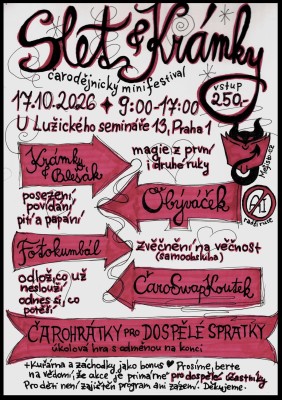 Slet & Krámky
čarodějnický minifestival
17.10.2026 ✦ 9:00-17:00
vstup
250,-
U Lužického semináře 13, Praha 1
Krámky
& Blešák
magie z první
i druhé ruky
posezení,
povídání
pití a papání
Obýváček
AI
Fotokumbál
zvěčnění na věčnost
(samoobsluha)
odlož, co už
neslouží
odnes si, co
potěší
ČaroSwapKoutek
ČAROHRÁTKY pro DOSPĚLÉ SPRATKY
úkolová hra s odměnou na konci
+ Kuřárna a záchodky jako bonus ♥ Prosíme, berte
na vědomí, že akce je primárně pro dospělé účastníky
Pro děti není zajištěn program ani zázemí. Děkujeme.